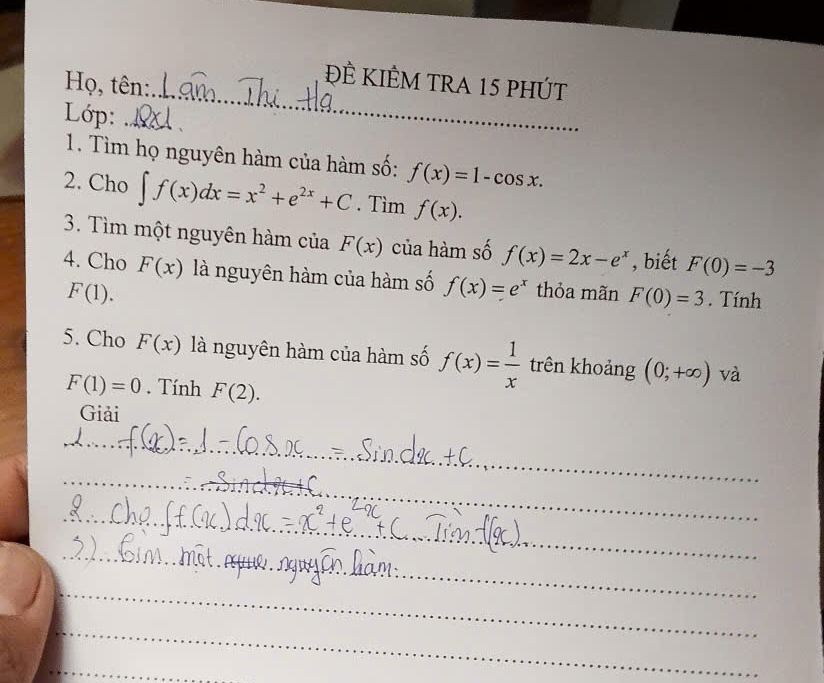 ĐỀ KIỂM TRA 15 PHÚT
Họ, tên:..Lâm Thị Hà
Lớp: ..
1. Tìm họ nguyên hàm của hàm số: f(x) = 1 - cos x.
2. Cho ∫ f(x)dx = x² + e²ˣ + C. Tìm f(x).
3. Tìm một nguyên hàm của F(x) của hàm số f(x) = 2x − eˣ, biết F(0) = −3
4. Cho F(x) là nguyên hàm của hàm số f(x) = eˣ thỏa mãn F(0) = 3. Tính
F(1).
5. Cho F(x) là nguyên hàm của hàm số f(x) = 1/x trên khoảng (0; +∞) và
F(1) = 0. Tính F(2).
Giải
1. f(x) = 1 - Cos x = Sin dx + C
= - Sin dx + C
2. Cho ∫f(x)dx = x² + e²ˣ + C. Tìm f(x).
3.) Tìm một nguyên hàm: